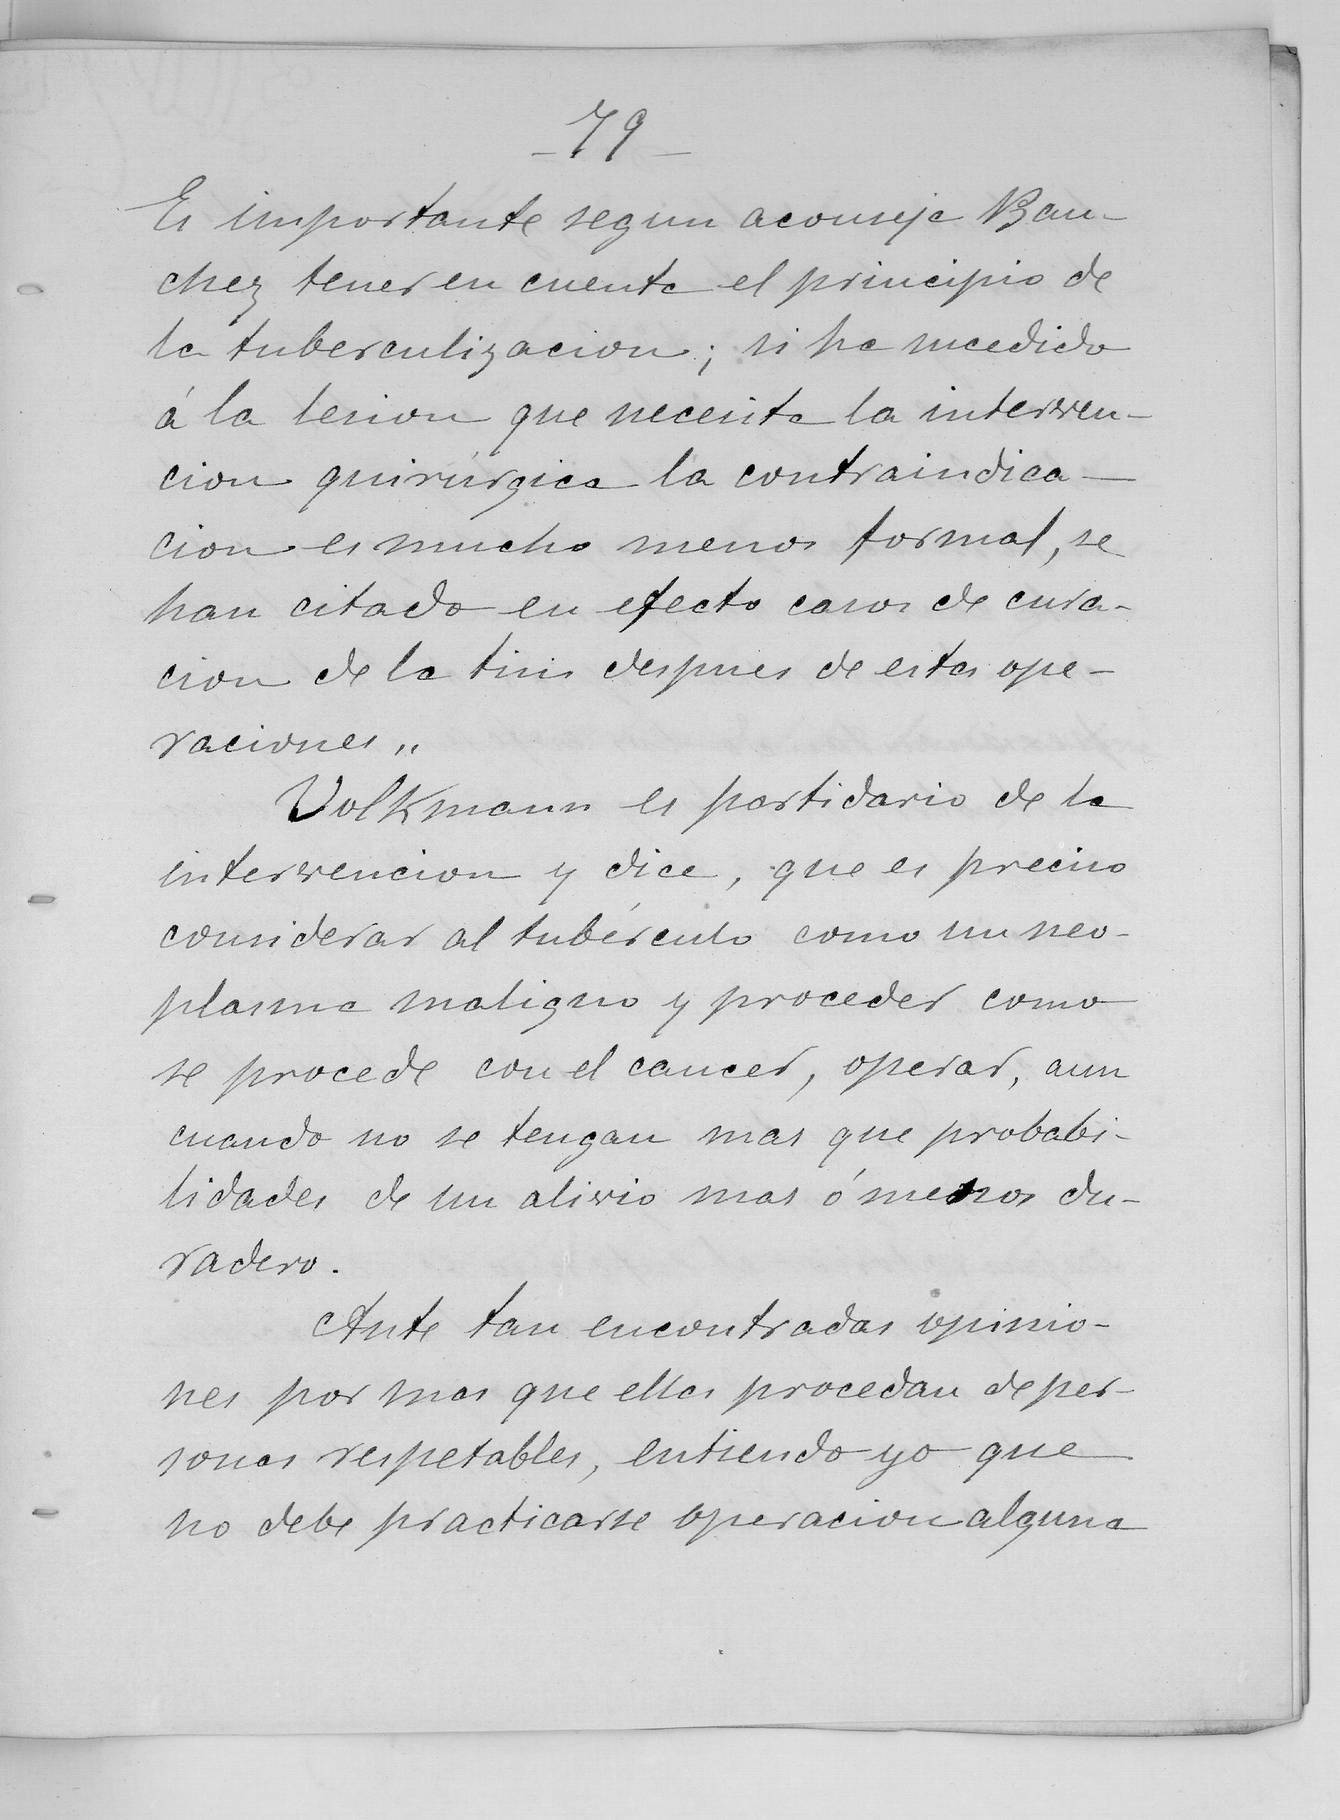 -79-
Es importante segun aconseja Bau-
chez tener en cuenta el principio de
la tuberculizacion; si ha sucedido
á la lesion que necesita la interven-
cion quirúrgica la contraindica-
cion es mucho menos formal, se
han citado en efecto casos de cura-
cion de la tisis despues de estas ope-
raciones"
Volkmann es partidario de la
intervencion y dice, que es preciso
considerar al tubérculo como un neo-
plasma maligno y proceder como
se procede con el cancer, operar, aun
cuando no se tengan mas que probabi-
lidades de un alivio mas ó menos du-
radero.
Ante tan encontradas opinio-
nes por mas que ellas procedan de per-
sonas respetables, entiendo yo que
no debe practicarse operacion alguna